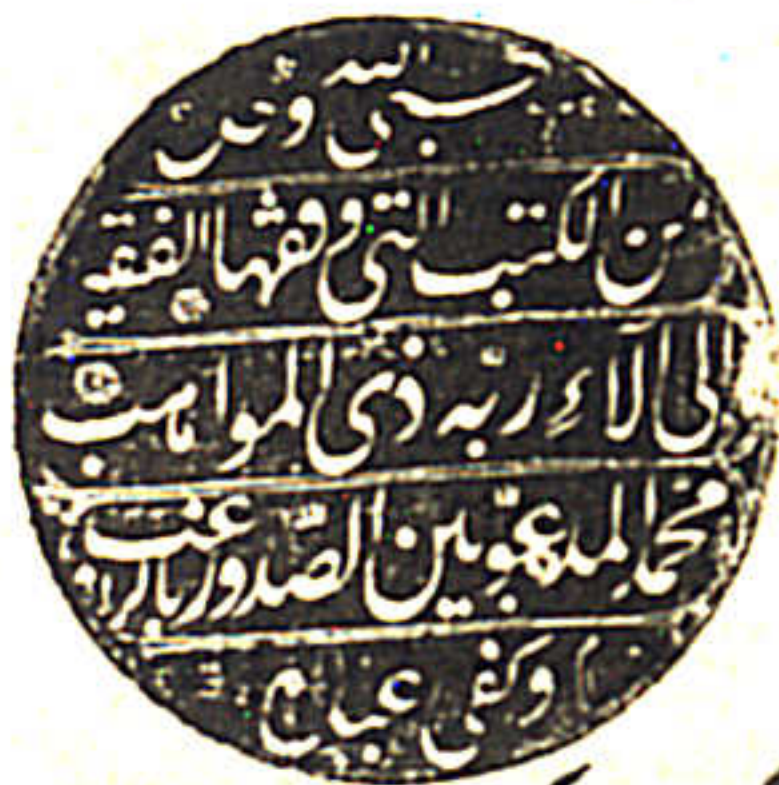 حسبي الله وحده
من الكتب التي وقفها الفقير
الى آلاء ربّه ذي المواهب
محمد المدعوّ بين الصّدور بالراغب
وكفى عبده